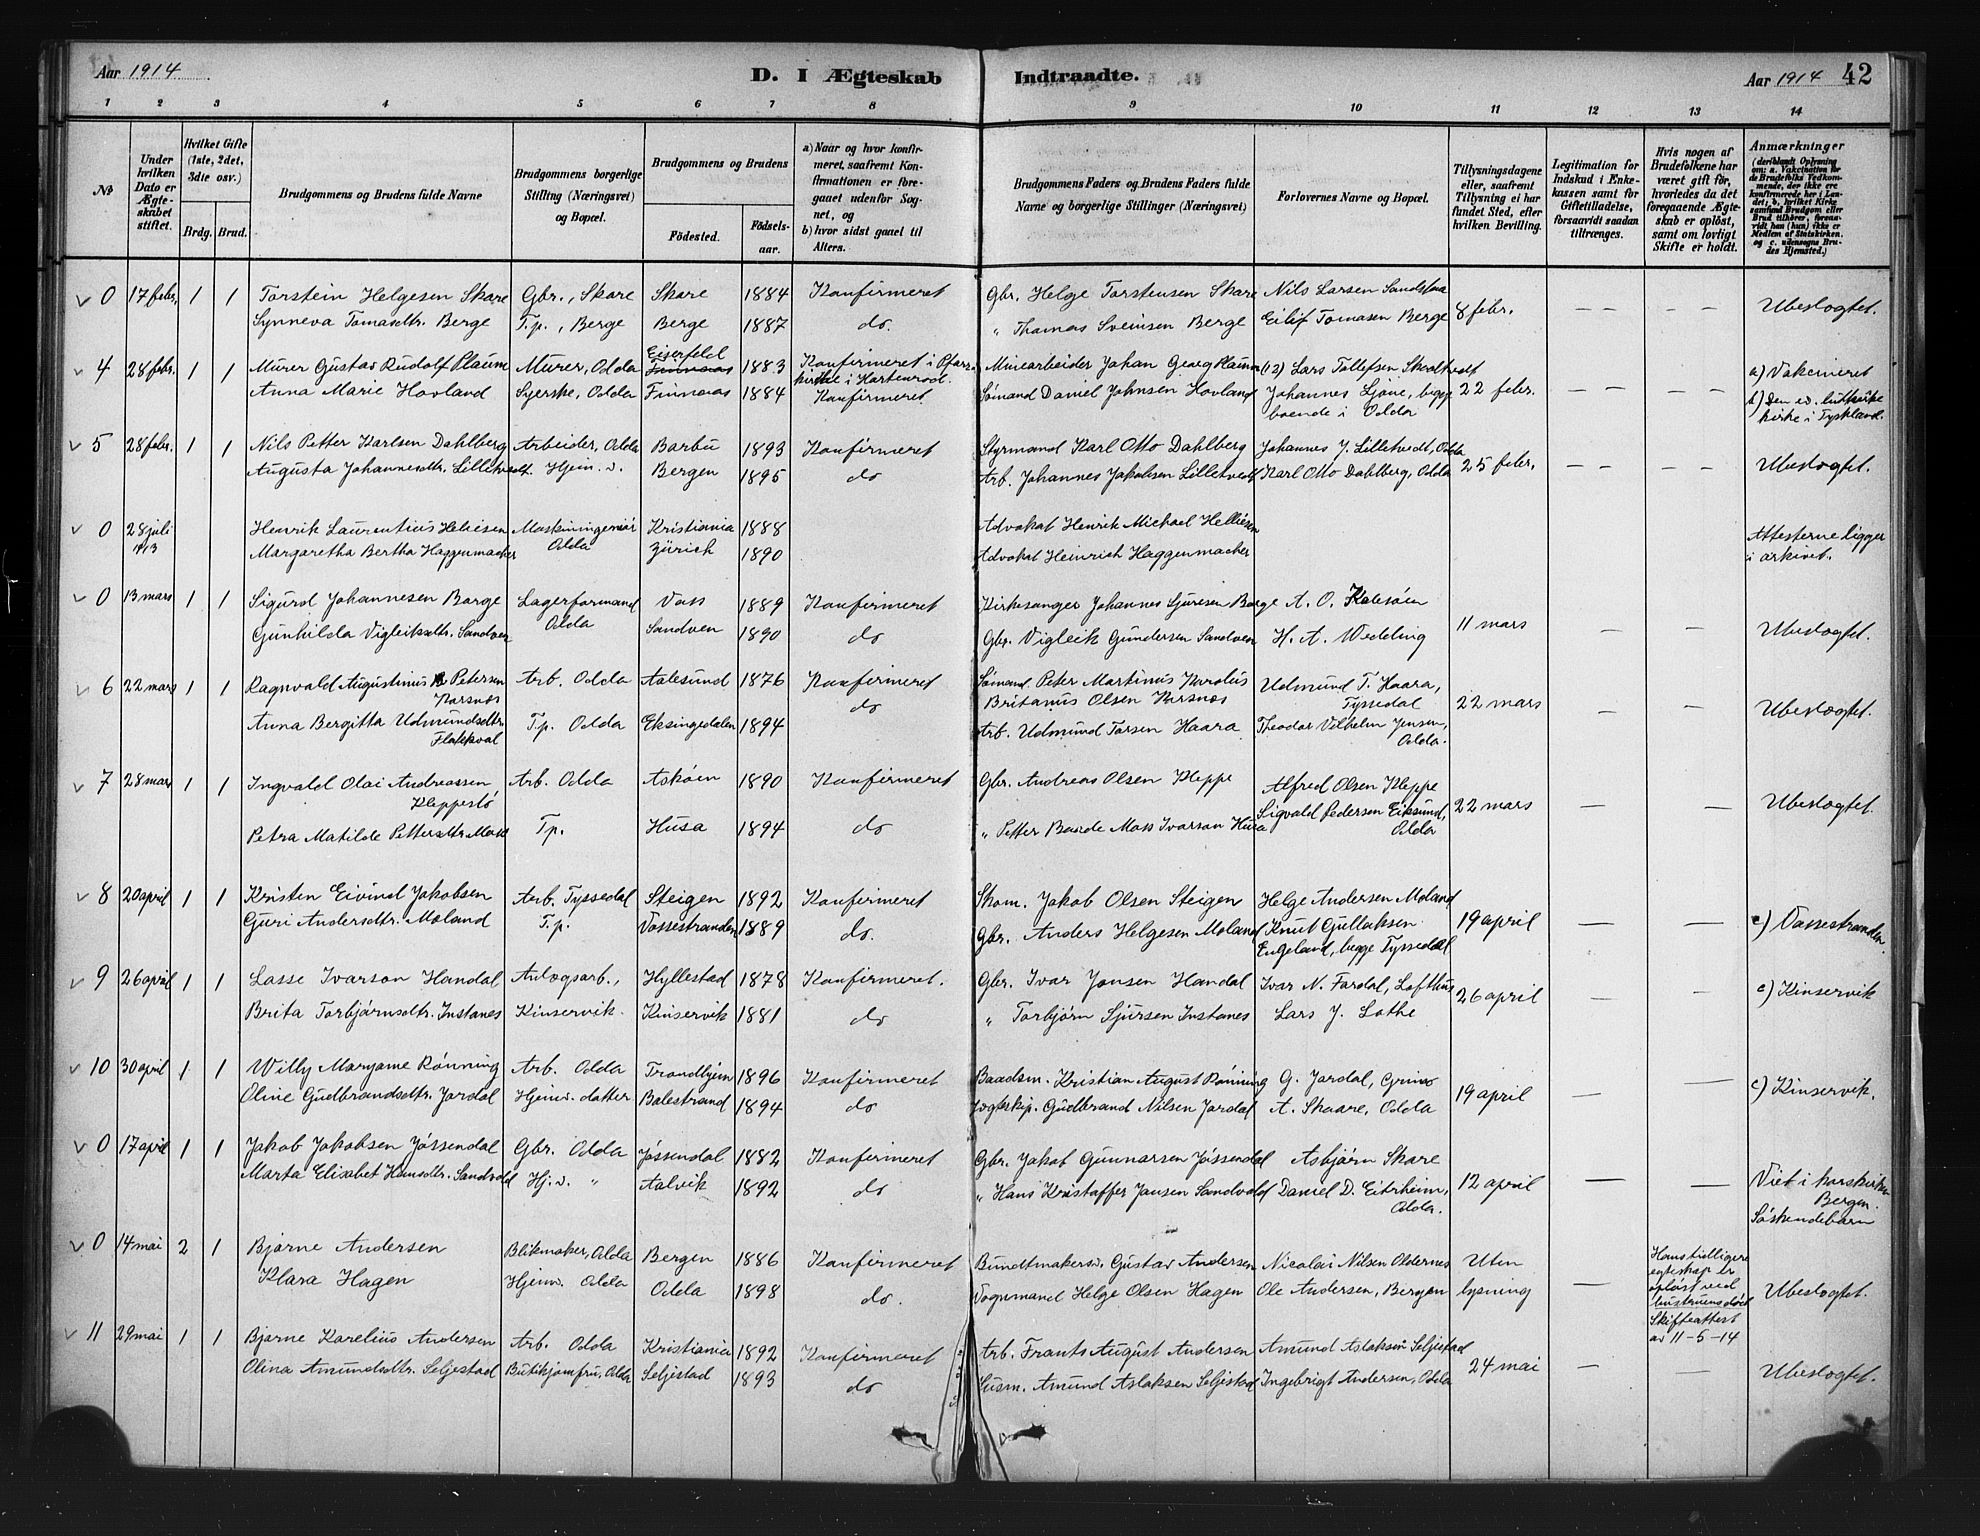 Aar 1914
D. I Ægteskab
Indtraadte.
Aar 1914 42
1 2 3 4 5 6 7 8 9 10 11 12 13 14
№
Under hvilken Dato er Ægteskabet stiftet.
Hvilket Gifte (1ste, 2det, 3die osv.)
Brdg. Brud.
Brudgommens og Brudens fulde Navne
Brudgommens borgerlige Stilling (Næringsvei) og Bopæl.
Brudgommens og Brudens
Födested.
Födselsaar.
a) Naar og hvor konfirmeret, saafremt Konfirmationen er foregaaet udenfor Sognet, og
b) hvor sidst gaaet til Alters.
Brudgommens Faders og Brudens Faders fulde Navne og borgerlige Stillinger (Næringsvei)
Forlovernes Navne og Bopæl.
Tillysningsdagene eller, saafremt Tillysning ei har fundet Sted, efter hvilken Bevilling.
Legitimation for Indskud i Enkekassen samt for Giftetilladelse, forsaavidt saadan tiltrænges.
Hvis nogen af Brudefolkene har været gift før, hvorledes da det foregaaende Ægteskab er opløst, samt om lovligt Skifte er holdt.
Anmærkninger
(deriblandt Oplysning om: a. Vakcination for de Brudefolks Vedkommende, der ikke ere konfirmerede her i Landet; b. hvilket Kirkesamfund Brudgom eller Brud tilhører, forsaavidt han (hun) ikke er Medlem af Statskirken, og c. udensogns Brudes Hjemsted.)
0 17 febr. 1 1 Torstein Helgesen Skare Gbr., Skare Skare 1884 Konfirmeret Gbr. Helge Torstensen Skare Nils Larsen 8 febr. — — — — Ubeslegtet.
Synneva Tomasdtr. Berge T.p., Berge Berge 1887 do. " Thomas Sveinsen Berge Eilif Tomasen Berge
4 28 febr. 1 1 Murer Gustav Rudolf Plaum Murer, Odda Eiserfeld 1883 Konfirmeret i Pfarrkirche i Hartenrod. Minearbeider Johan Georg Plaum (12) Lars Tollefsen Skoltvedt 22 febr. — — — — a) Vakcineret
Anna Marie Hovland Syerske, Odda Finnaas 1884 Konfirmeret Sømand Daniel Johnsen Hovland Johannes Ljöne, begge boende i Odda b) Den ev. lutherske kirke i Tyskland.
5 28 febr. 1 1 Nils Petter Karlsen Dahlberg Arbeider, Odda Barbu 1893 Konfirmeret Styrmand Karl Otto Dahlberg Johannes J. Lilletvedt, Odda 25 febr. — — — — Ubeslegtet.
Augusta Johannesdtr. Lilletvedt. Hjem. v. Bergen 1895 do Arb. Johannes Jakobsen Lilletvedt Karl Otto Dahlberg, Odda
0 28 juli 1913 Henrik Laurentius Helliesen Maskiningeniør Odda Kristiania 1888 Advokat Henrik Michael Helliesen Attesterne ligger i arkivet.
Margaretha Bertha Haggenmacher Zürich 1890 Advokat Heinrich Haggenmacher
0 13 mars 1 1 Sigurd Johannesen Borge Lagerformand Odda Voss 1889 Konfirmeret Kirkesanger Johannes Sjursen Borge A. O. Kalesøen 11 mars — — Ubeslegtet.
Gunhilda Vigleiksdtr. Sandven Sandven 1890 do Gbr. Vigleik Gundersen Sandven H. A. Wedeling
6 22 mars 1 1 Ragnvald Augustinus Petersen Korsnes Arb. Odda Aalesund 1876 Konfirmeret Sømand Peter Martinus Karolus Britanus Olsen Korsnes Udmund T. Haara, Tyssedal 22 mars — — Ubeslegtet.
Anna Bergitta Udmundsdtr. Flatekval T.p. Odda Eksingedalen 1894 do Arb. Udmund Torsen Haara Theodor Vilhelm Jensen, Odda.
7 28 mars 1 1 Ingvald Olai Andreassen Kleppestö Arb. Odda Askøen 1890 Konfirmeret Gbr. Andreas Olsen Kleppe Alfred Olsen Kleppe 22 mars — — Ubeslegtet.
Petra Matilde Pettersdtr. Moss T.p. Husa 1894 do " Petter Baarde Moss Ivarson Husa Sigvald Pedersen Eiksund, Odda
8 20 april 1 1 Kristen Eivind Jakobsen Arb. Tyssedal Steigen 1892 Konfirmeret Skom. Jakob Olsen Steigen Helge Andersen Moland 19 april — — c) Vossestranden
Guri Andersdtr. Moland T.p. Vossestranden 1889 do. Gbr. Anders Helgesen Moland Knut Gullaksen Engeland, begge Tyssedal
9 26 april 1 1 Lasse Ivarson Handal Anlægsarb., Hyllestad 1878 Konfirmeret. Gbr. Ivar Jonsen Handal Ivar N. Fardal, Lofthus 26 april — — c) Kinservik
Brita Torbjørnsdtr. Instanes Kinservik. Kinservik 1881 do " Torbjørn Sjursen Instanes Lars J. Lothe
10 30 april 1 1 Willy Maryame Rönning Arb. Odda Trondhjem 1896 Konfirmeret Baadsm. Kristian August Rönning G. Jordal, 19 april — — c) Kinservik.
Oline Gudbrandsdtr. Jordal Hjemv. datter Balestrand 1894 do Jogtskip. Gudbrand Nilsen Jordal A. Skaare, Odda
0 17 april 1 1 Jakob Jakobsen Jøssendal Gbr. Odda Jøssendal 1882 Konfirmeret Gbr. Jakob Gunnarsen Jøssendal Asbjørn Skare 12 april — — Viet i korskirken Bergen. Søskendebarn
Marta Elisabet Hansdtr. Sandvold Hj.v. " Aalvik 1892 do " Hans Kristoffer Jansen Sandvold Daniel D. Eitrheim, Odda.
0 14 mai 2 1 Bjarne Andersen Blikmaker, Odda Bergen 1886 Konfirmeret Bundtmakersv. Gustav Andersen Nicolai Nilsen Oldernes Uten lysning — Hans tidligere egteskap er opløst ved hustruens død Skifteattest av 11-5-14 Ubeslegtet.
Klara Hagen Hjemv. Odda Odda 1898 do. Vognmand Helge Olsen Hagen Ole Andersen, Bergen
11 29 mai 1 1 Bjarne Karelius Andersen Arb. Odda Kristiania 1892 Konfirmeret Arb. Frants August Andersen Amund Aslaksen Seljestad 24 mai — — Ubeslegtet.
Olina Amundsdtr. Seljestad Butikjomfru, Odda Seljestad 1893 do Husm. Amund Aslaksen Seljestad Ingebrigt Andersen, Odda